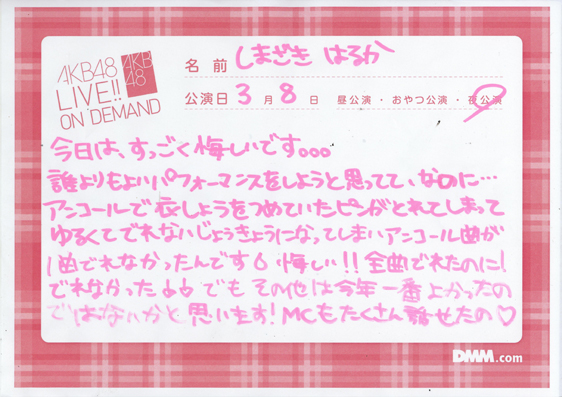 AKB48
LIVE!!
ON DEMAND
AKB
48
名前 しまざき はるか
公演日 3月8日 昼公演・おやつ公演・夜公演
今日は、すっごく悔しいです。。。
誰よりもよいパフォーマンスをしようと思ってて、なのに…
アンコールで衣しょうをつめていたピンがとれてしまって
ゆるくてでれないじょうきょうになってしまいアンコール曲が
1曲でれなかったんです 悔しい!!全曲でれたのに!
でれなかった↓↓ でもその他は今年一番よかったの
ではないかと思います!MCもたくさん話せたの♡
DMM.com